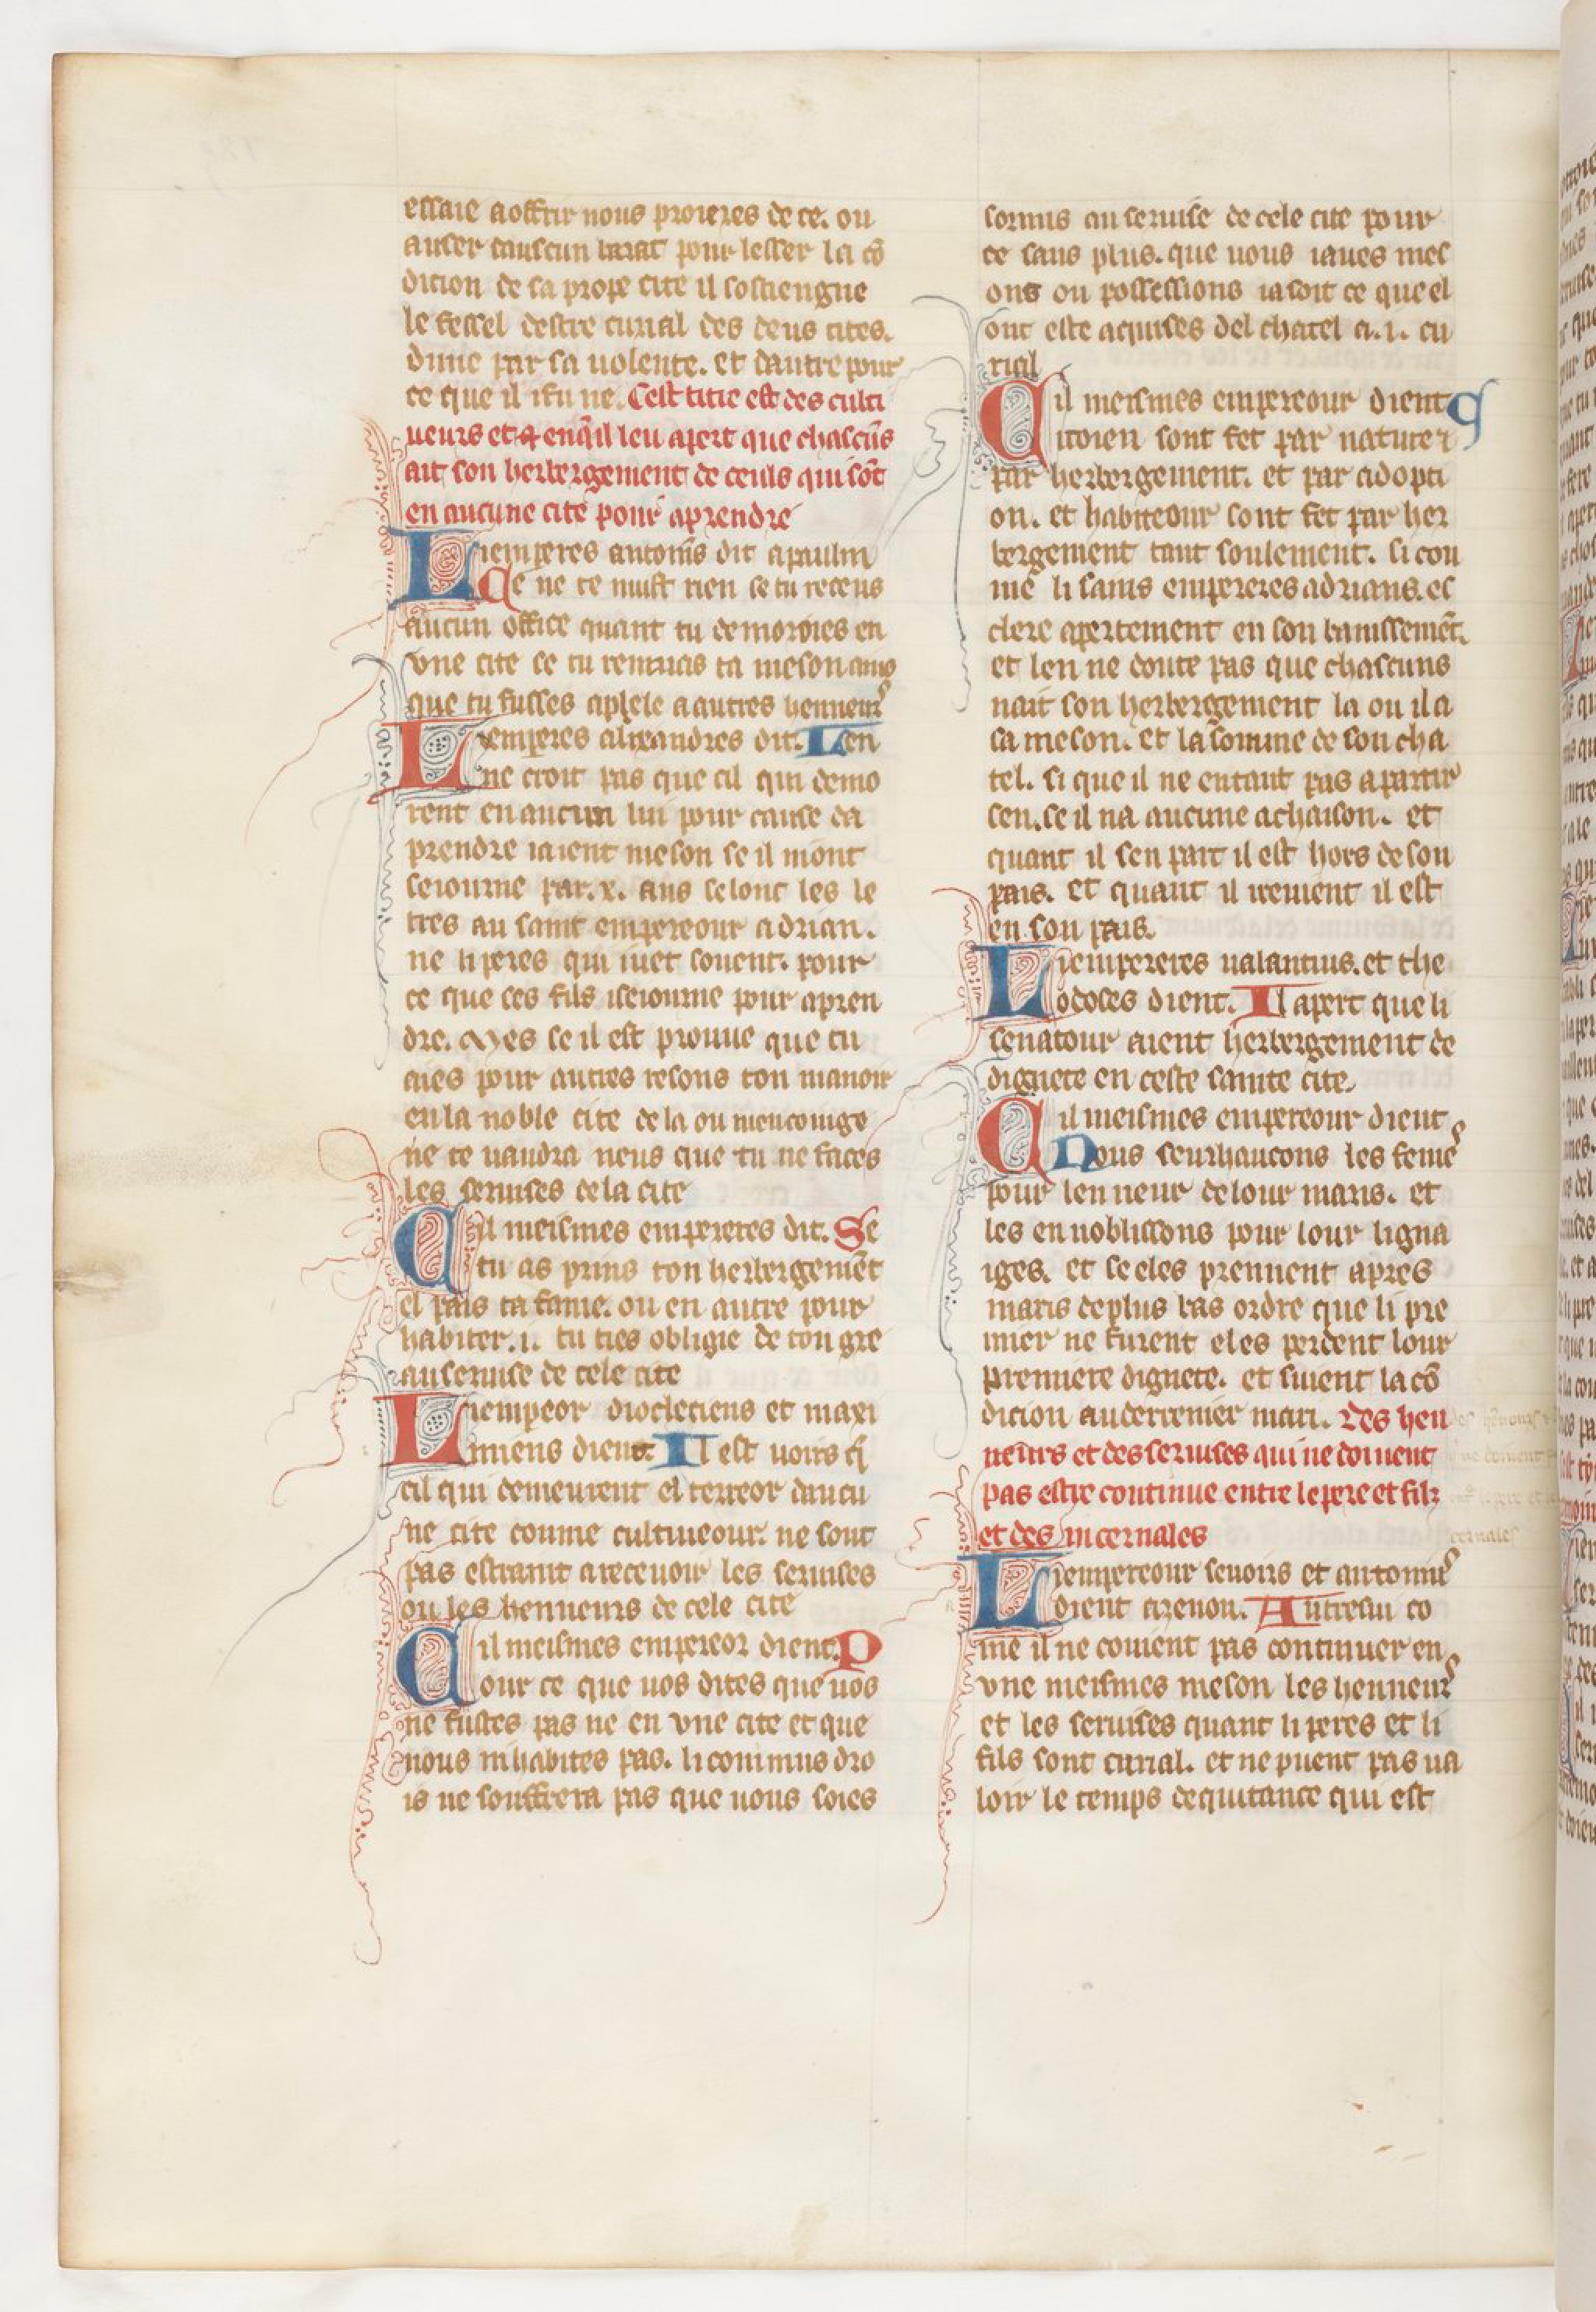 essaie a offrir nous proieres de ce. ou
auser dauscun barat pour lesser la cō
dicion de sa propre cite il sostiengne
le fessel destre curial des deus cites.
dune par sa uolente. et dautre pour
ce que il ifu ne. Cest title est des culti
ueurs et en q̄il leu apert que chascūs
ait son herbergement de ceuls qui sōt
en aucune cite pour aprendre
Liemperes antonīs dit a paulin
Ce ne te nuist rien se tu receus
aucun office quant tu demoroies en
vne cite se tu remuas ta meson ains
que tu fusses aplele a autres henneurs
Lemperes alixandres dit. Len
ne croit pas que cil qui demo
rent en aucun lui pour cause da
prendre iaient meson se il niont
seiourne par .x. ans selonc les le
tres au saint empereour adrian.
ne li peres qui iuet souent. pour
ce que ses fils iseiourne pour apren
dre. Mes se il est prouue que tu
aies pour autres resons ton manoir
en la noble cite de la ou mencoinge
ne te uaudra neus que tu ne faces
les seruises de la cite
Cil meismes empereres dit. Se
tu as prins ton herbergemēt
el pais ta fame. ou en autre pour
habiter .i. tu ties obligie de ton gre
au seruise de cele cite
Liempeor diocleciens et maxi
miens dient. Il est uoirs q̄
cil qui demeurent el terreor daucu
ne cite coume cultiueour. ne sont
pas estraint a receuoir les seruises
ou les henneurs de cele cite
Cil meismes empereor dient. P
our ce que uos dites que uos
ne fustes pas ne en vne cite et que
nous ni habites pas. li commus dro
is ne souffrera pas que nous soies
sormis au seruise de cele cite pour
ce sans plus. que uous iaues mes
ons ou possessions ia soit ce que el
ont este aquises del chatel a .i. cu
rial
Cil meismes empereour dient C
itoien sont fet par nature ⁊
par herbergement. et par adopti
on. et habiteour sont fet par her
bergement tant soulement. si cou
me li sains empereres adrians. es
clere apertement en son banissemēt.
et len ne doute pas que chascuns
nait son herbergement la ou il a
sa meson. et la somme de son cha
tel. si que il ne entaut pas a partir
sen. se il na aucune achaison. et
quant il sen part il est hors de son
pais. et quant il ireuient il est
en son pais.
Liempereres ualantius. et the
odoses dient. Il apert que li
senatour aient herbergement de
dignete en ceste sainte cite.
Cil meismes empereour dient
Nous seurhaucons les femes
pour lenneur de lour maris. et
les ennoblissons pour lour ligna
iges. et se eles prennent apres
maris de plus bas ordre que li pre
mier ne furent eles perdent lour
premiere dignete. et suient la cō
dicion au derrenier mari. Des hen
neurs et des seruises qui ne doiuent
pas estre continue entre le pere et fils
et des incernales
Liempereour seuoirs et antonins
dient a zenon. Autresui co
me il ne couient pas continuer en
vne meismes meson les henneurs
et les seruises quant li peres et li
fils sont curial. et ne puent pas ua
loir le temps dequitance qui est